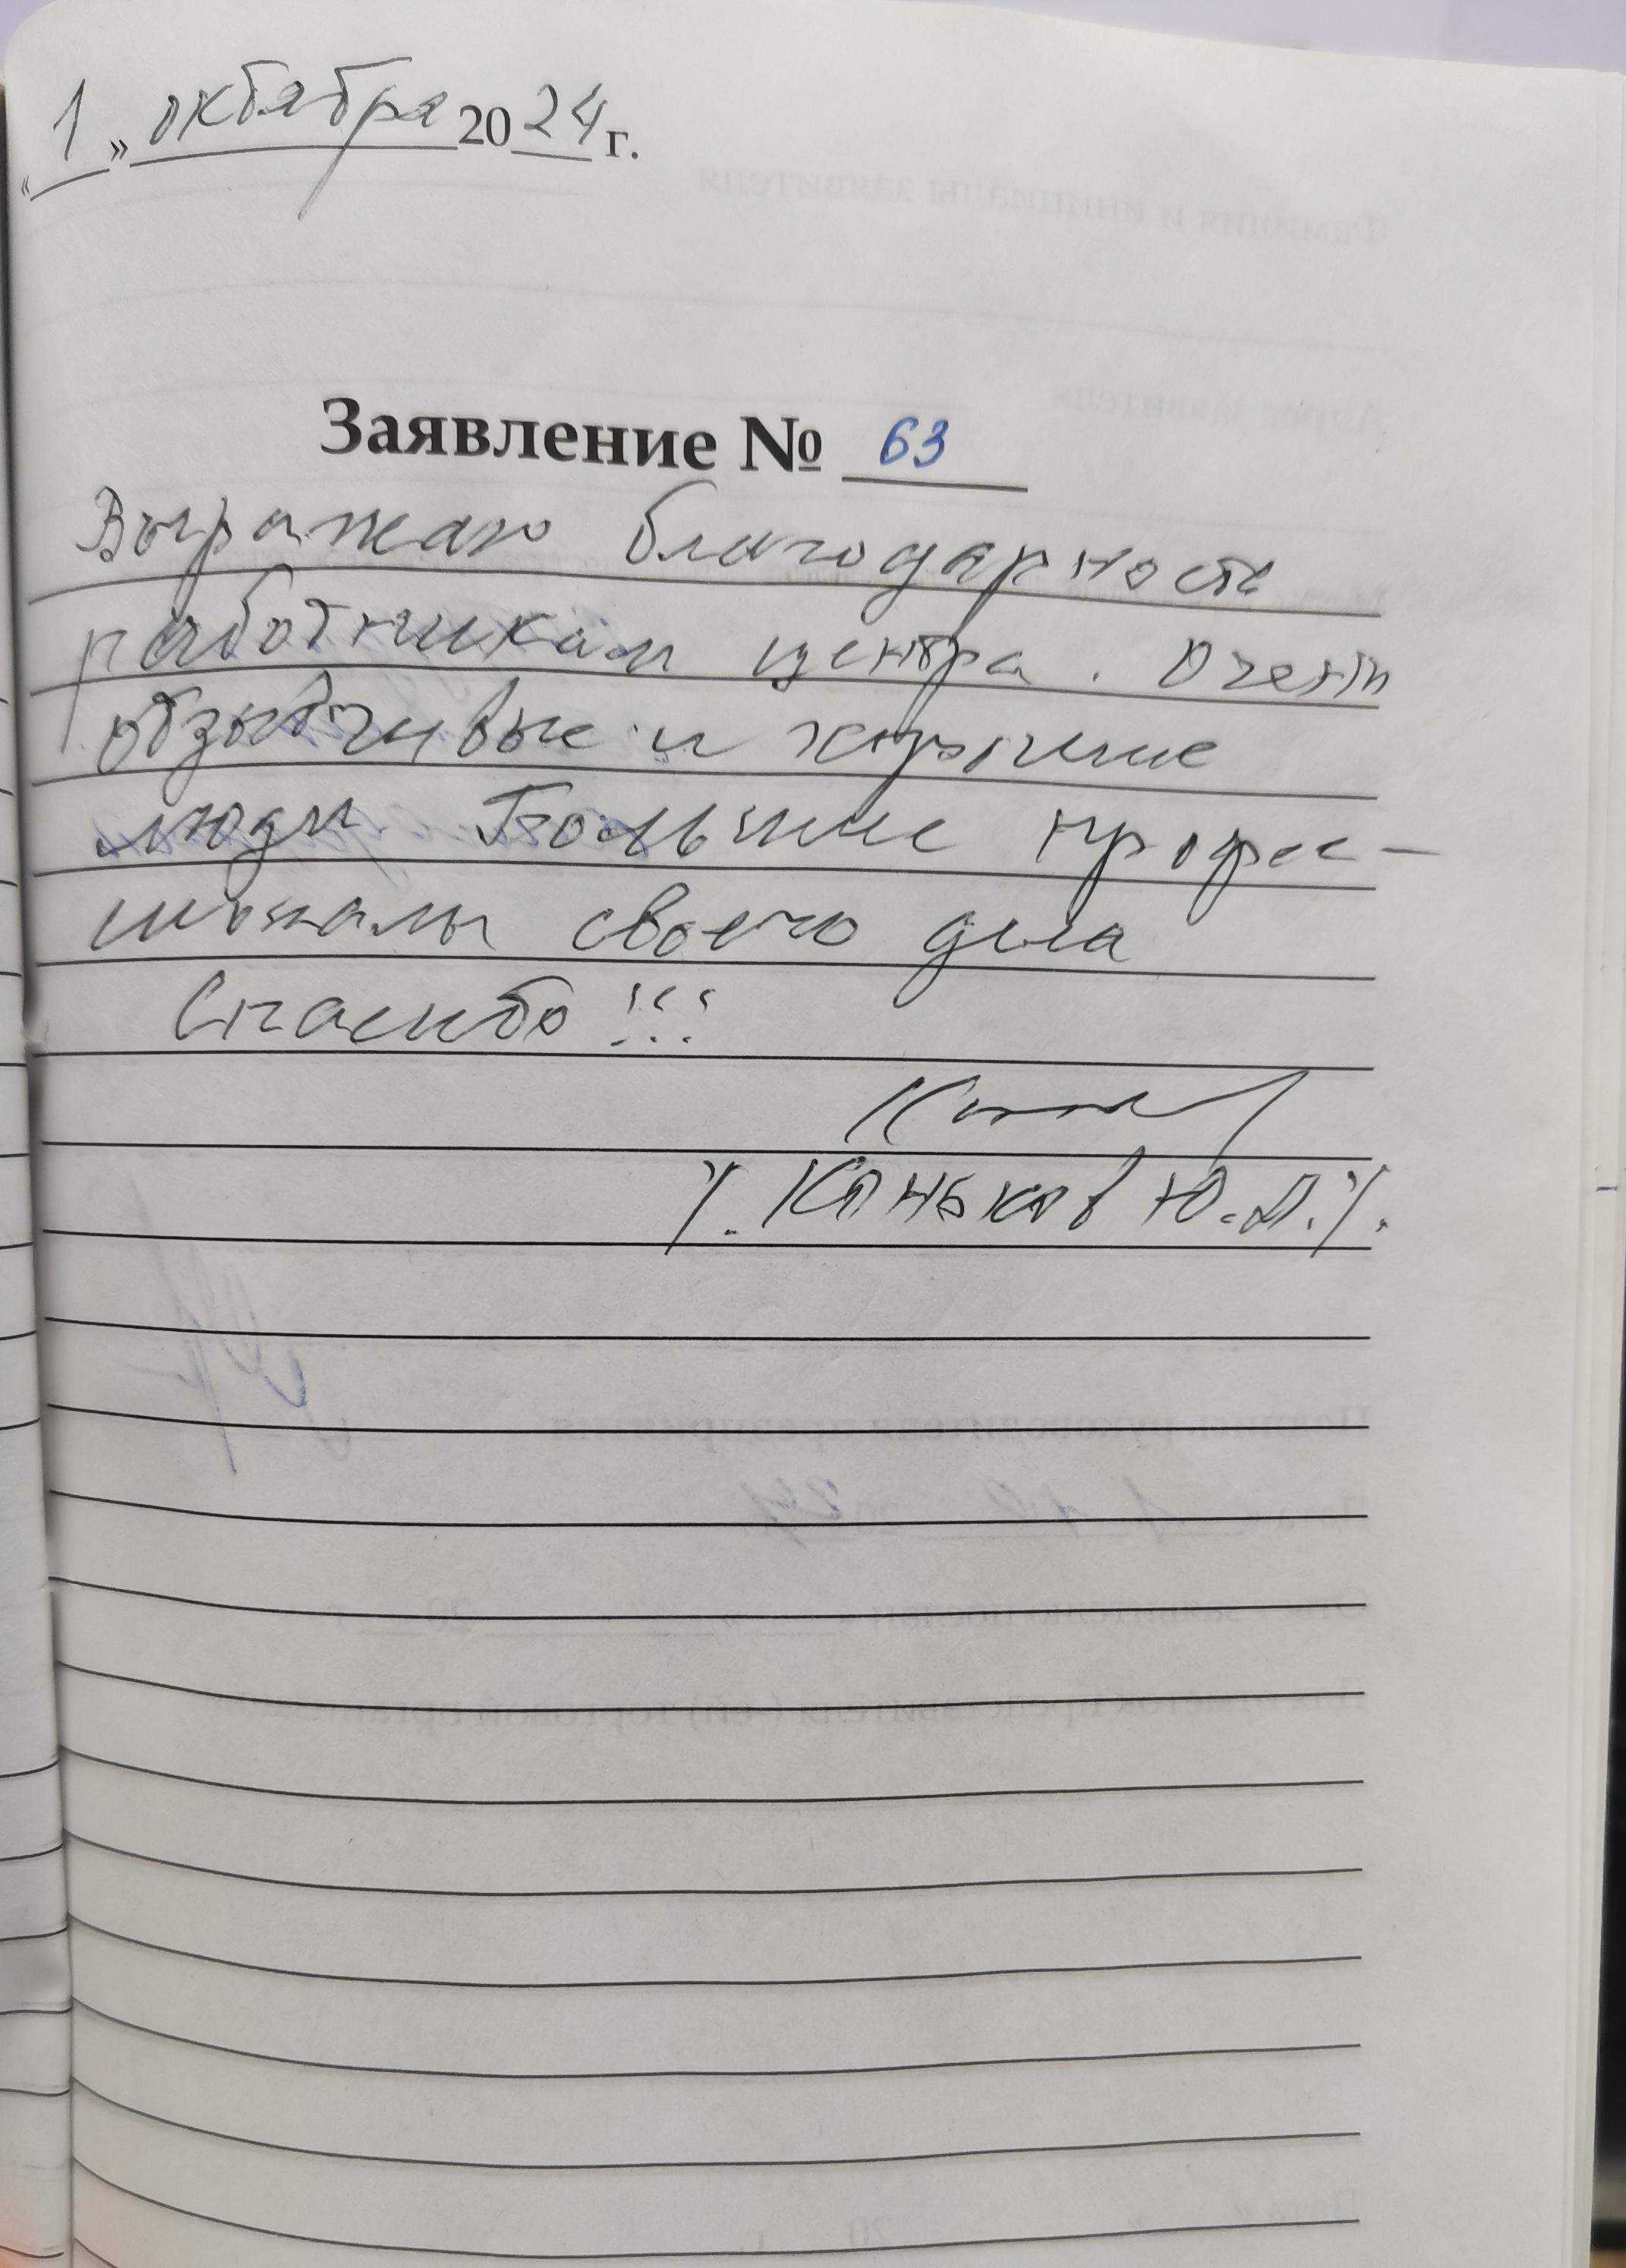 «1» октября 2024 г.
Заявление № 63
Выражаю благодарность
работникам центра. Очень
отзывчивые и хорошие
люди Большие профес-
ионалы своего дела
Спасибо!!!
/. Коньков Ю.Д./.